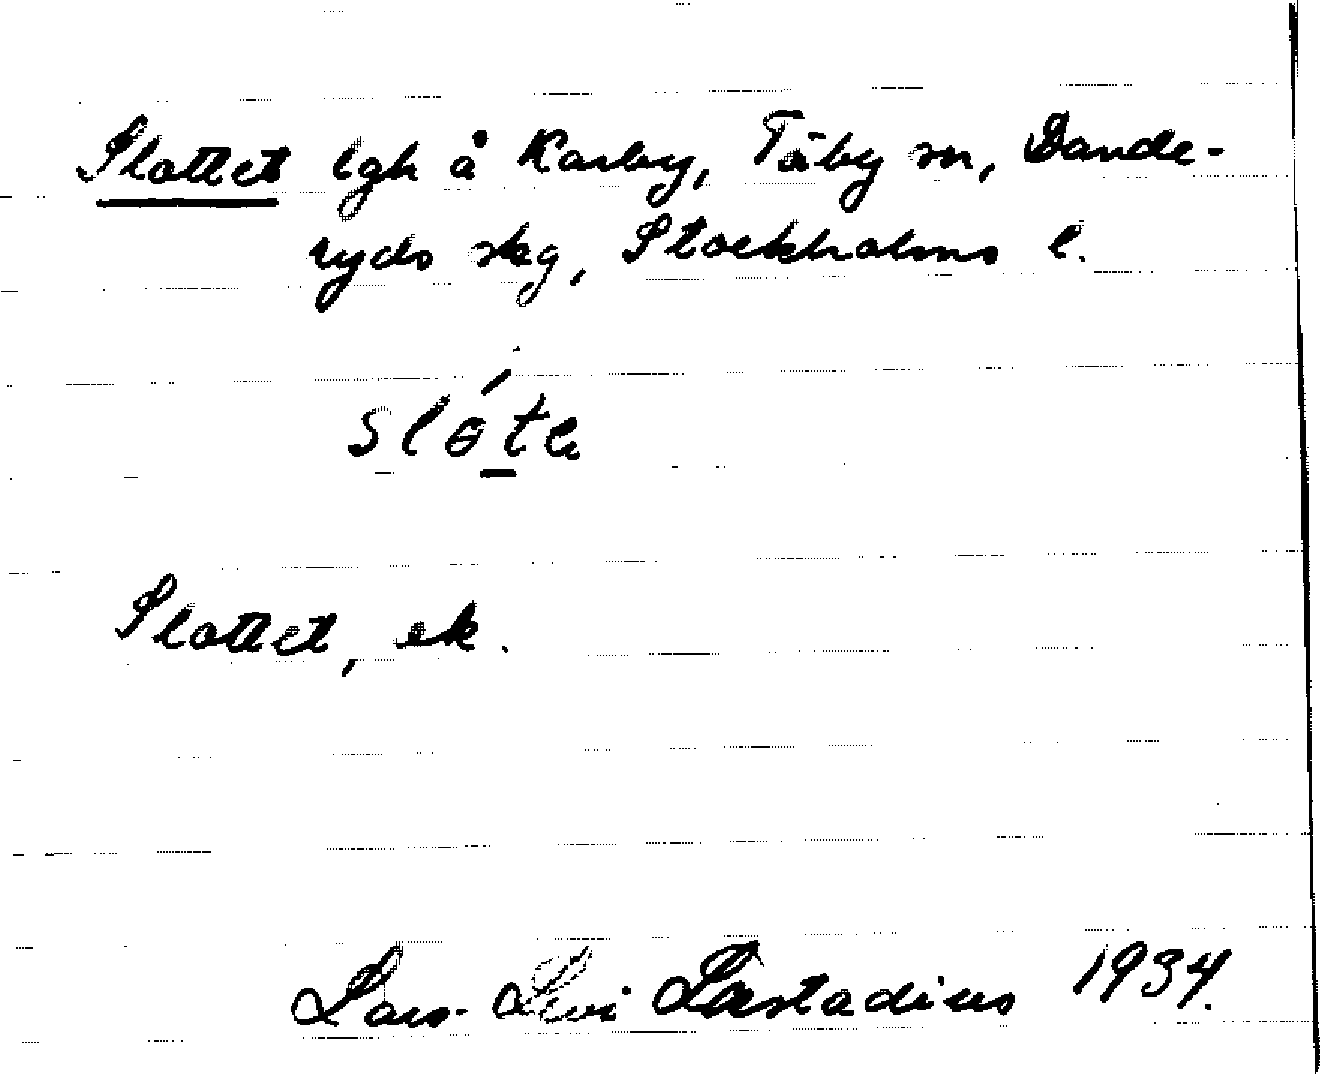 Slottet lgh å Karby, Täby sn, Dande-
ryds skg, Stockholms l.
Slottet, ek.
Lars-Levi Læstadius 1934.